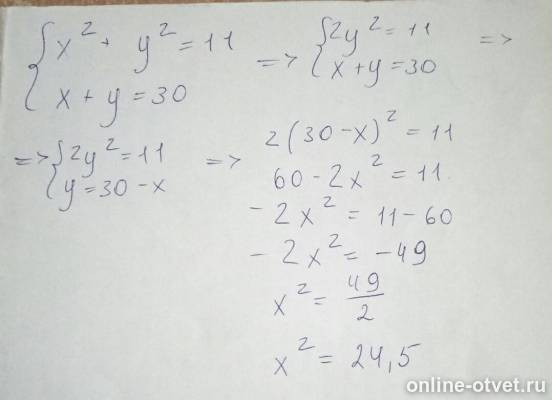 { x² + y² = 11
{ x + y = 30
=> { 2y² = 11
{ x + y = 30 =>
=> { 2y² = 11
{ y = 30 - x =>
2(30 - x)² = 11
60 - 2x² = 11
- 2x² = 11 - 60
- 2x² = - 49
x² = 49/2
x² = 24,5
online-otvet.ru